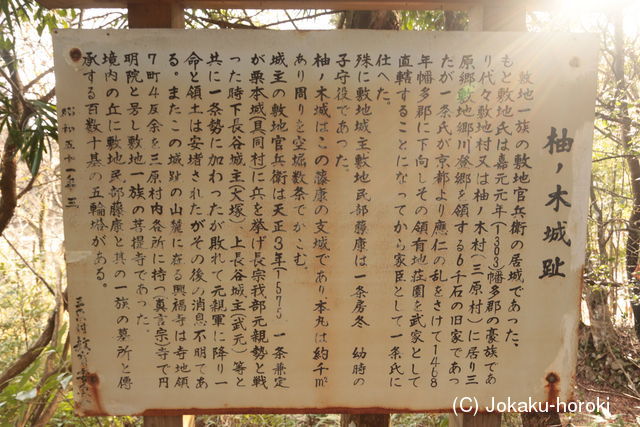 柚ノ木城趾
敷地一族の敷地官兵衛の居城であった、
もと敷地氏は嘉元元年(1303)幡多郡の豪族であ
り代々敷地村又は柚ノ木村(三原村)に居り三
原郷敷地郷川登郷を領する6千石の旧家であっ
たが一条氏が京都より應仁の乱をさけて1468
年幡多郡に下向しその領有地荘園を武家として
直轄することになってから家臣として一条氏に
仕へた。
殊に敷地城主敷地民部藤康は一条房冬 幼時の
子守役であった。
柚ノ木城はこの藤康の支城であり本丸は約千m²
あり周りを空堀数条でかこむ。
城主の敷地官兵衛は天正3年(1575) 一条兼定
が栗本城(具同村)に兵を挙げ長宗我部元親勢と戦
った時下長谷城主(大塚) 上長谷城主(武元)等と
共に一条勢に加わったが敗れて元親軍に降り一
命と領土は安堵されたがその後の消息不明であ
る。またこの城趾の山麓に在る興福寺は寺地領
7町4反余を三原村内各所に持つ(真言宗)寺で円
明院と号し敷地一族の菩提寺であった。
境内の丘に敷地民部藤康と其の一族の墓所と傳
承する百数十基の五輪塔がある。
昭和五十一年三
三原村教育委員会
(C) Jokaku-horoki